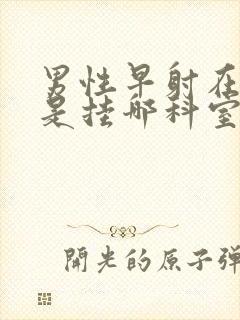 男性早射在
是挂哪科室
開光的原子彈